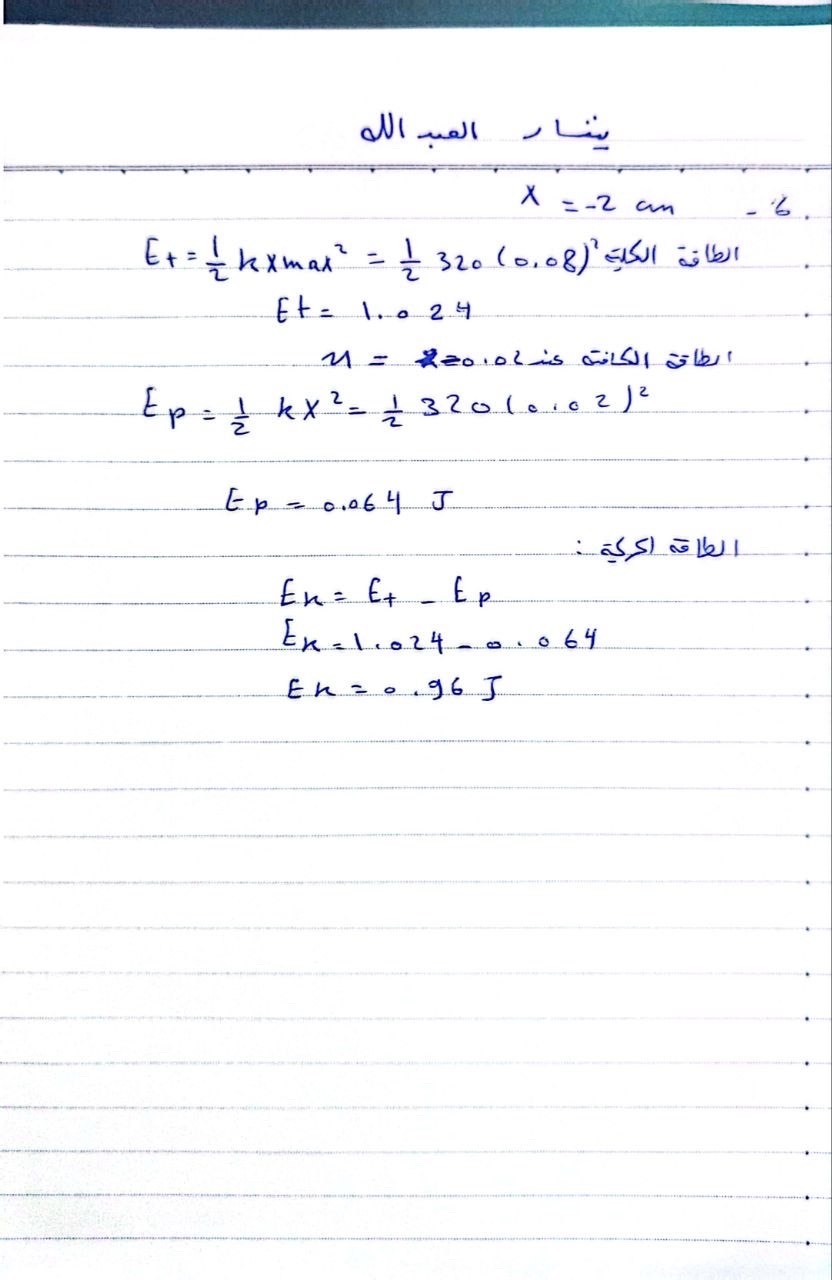 بشار العبد الله
6 - x = -2 cm
الطاقة الكلية Et = 1/2 k xmax² = 1/2 320 (0.08)²
Et = 1.024
الطاقة الكامنة عند 0.02 = x
Ep = 1/2 kx² = 1/2 320 (0.02)²
Ep = 0.064 J
الطاقة الحركية :
Ek = Et - Ep
Ek = 1.024 - 0.064
Ek = 0.96 J